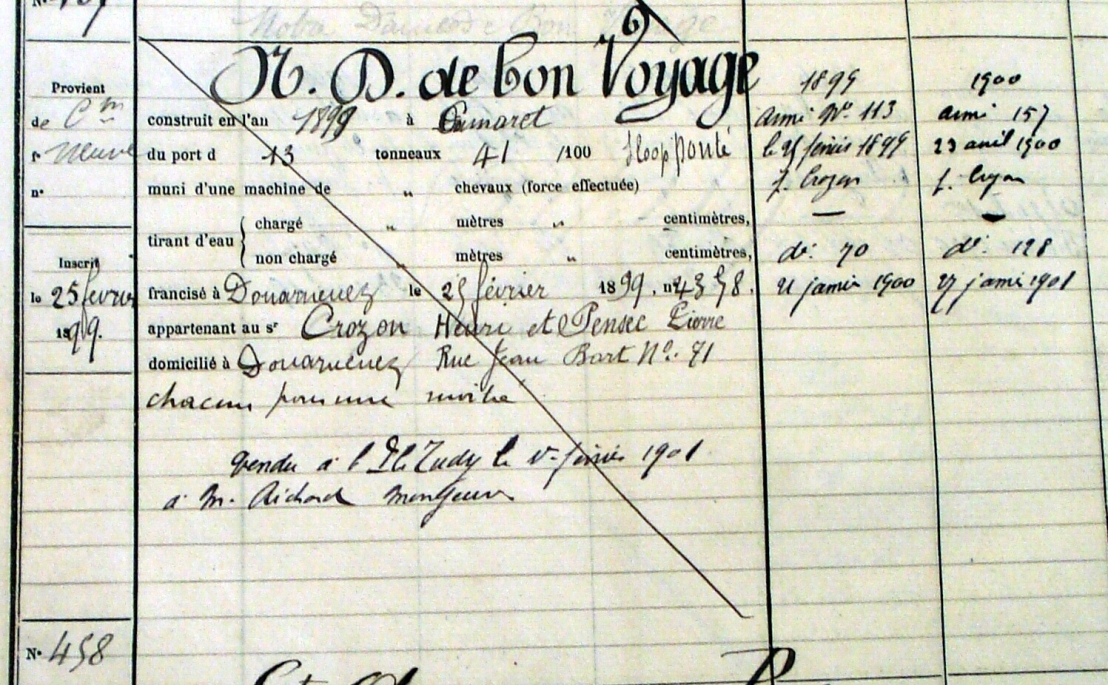 N. D. de bon Voyage
Provient
de Con
Neuve
nº
construit en l'an 1899 à Camaret
du port d 13 tonneaux 41 /100 Sloop ponté
muni d'une machine de „ chevaux (force effectuée)
tirant d'eau { chargé „ mètres „ centimètres,
non chargé „ mètres „ centimètres,
Inscrit
le 25 février
1899.
francisé à Douarnenez le 25 février 1899. nº 4358.
appartenant au sr Crozon Henri et Pensec Pierre
domicilié à Douarnenez Rue Jean Bart Nº. 71
chacun pour une moitié
Vendu à l'Ile Tudy le 1er février 1901
à M. Richard
1899
armé Nº. 113
le 25 février 1899
f. Crozon
—
dº: 70
21 janvier 1900
1900
armé 157
23 avril 1900
f. Crozon
—
dº: 128
27 janvier 1901
Nº 458